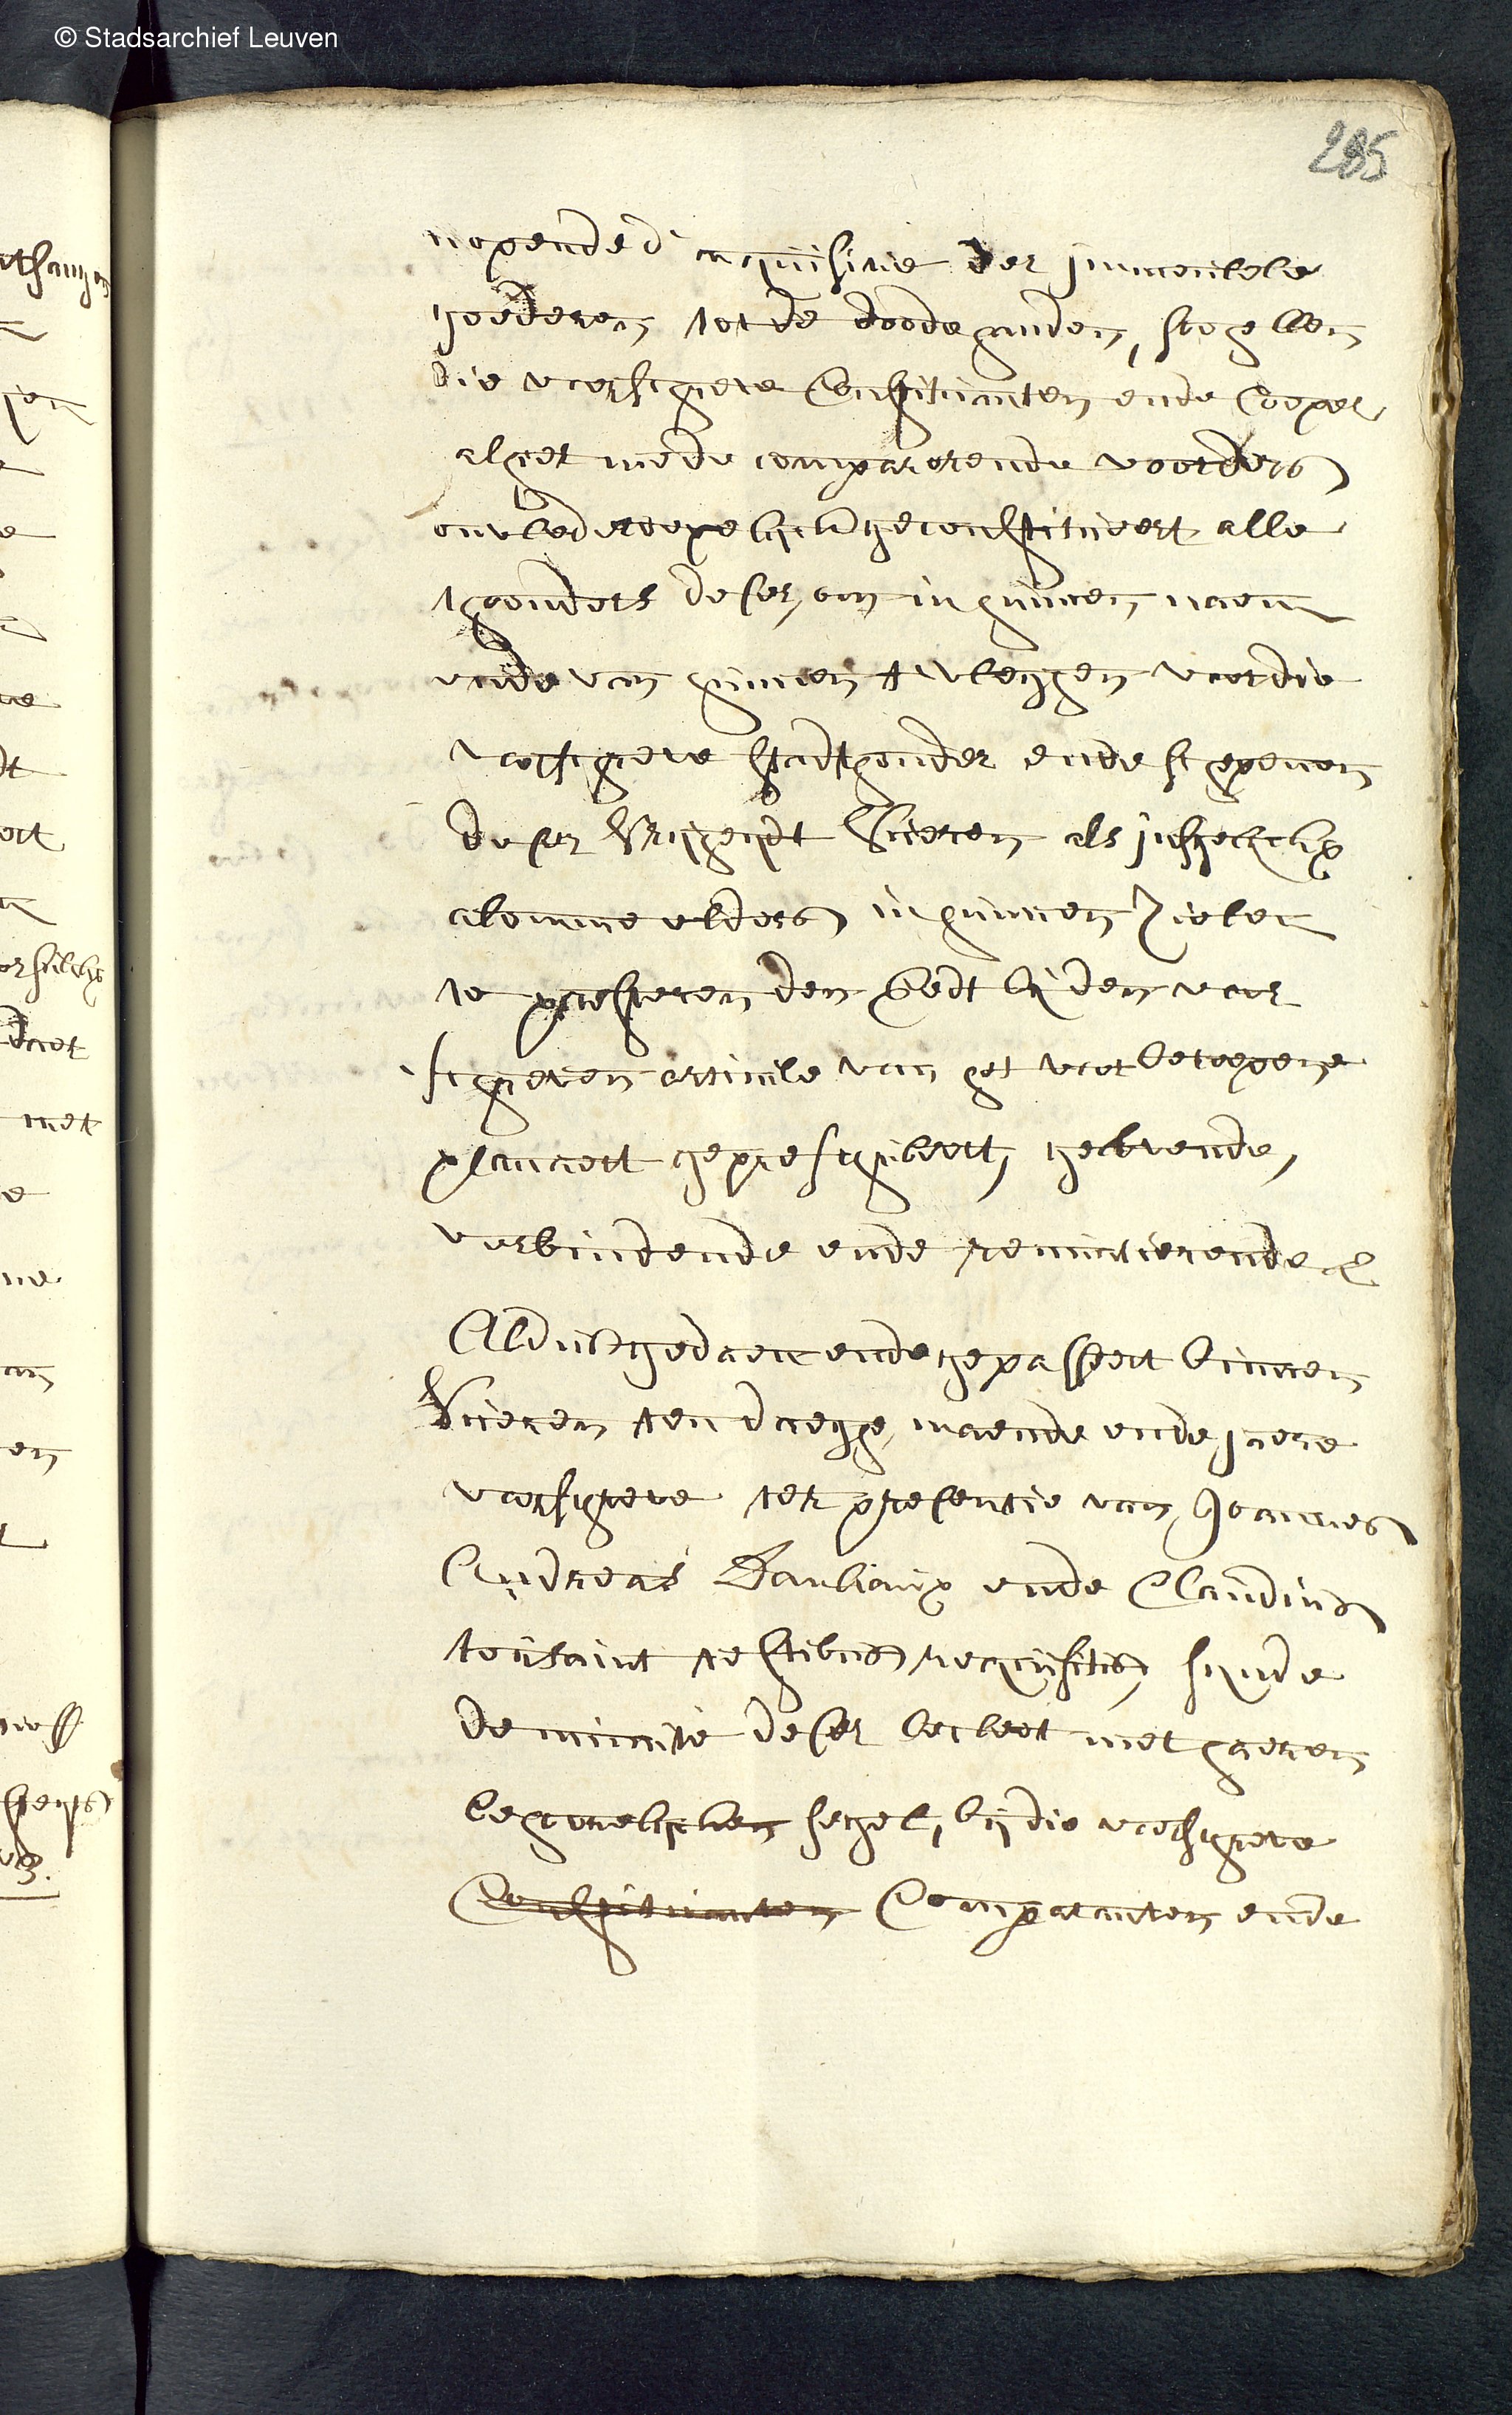 © Stadsarchief Leuven
285
nopende d' acquisitie der immeubele
goederen tot de doode handen, soo hebben
die voorschreve Constituanten ende Cooper
alhier mede comparerende voorders
onwederroepelijck geconstitueert alle
thoonders deser, om in hunnen naem
ende van hunnen t' weghen voor die
voorschreve stadthouder ende schepenen
deser Vrijheydt Vueren als insgelijckx
alomme elders in hunnen Zielen
te presteren den Eedt bij den voor
schreven articule van het voorberoepene
placcaert geprescribeert, gelovende,
verbindende ende renuntierende &
Aldus gedaen ende gepasseert binnen
Vueren ten daeghe, maende ende jaere
voorschreve ter presentie van Joannes
Andreas ende Claudius
tousaint testibus requisitis, sijnde
de minute deser becleet met haeren
behoorelijcken segel, bij die voorschreve
Constituanten Comparanten ende